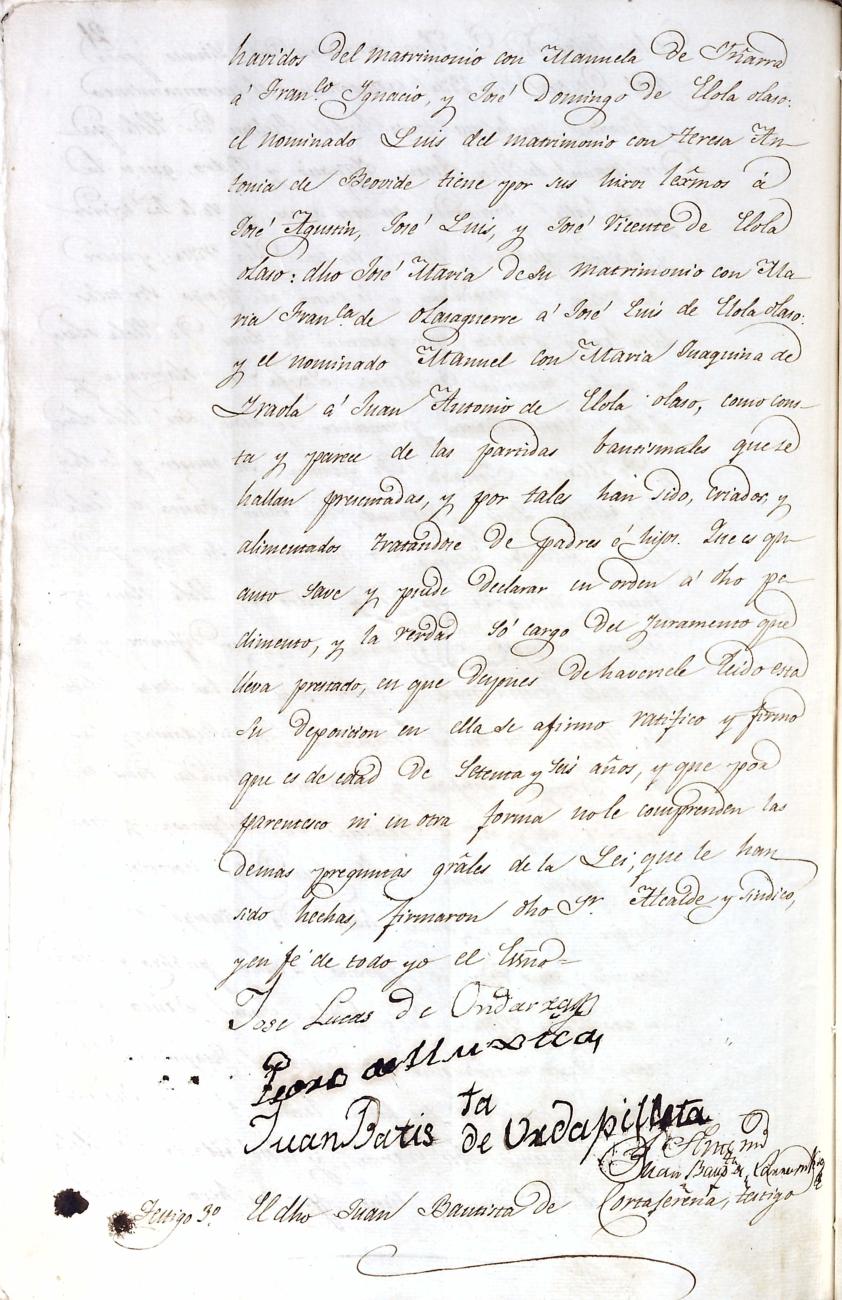 havidos del matrimonio con Manuela de Yñarra
á Fran.co Ygnacio, y José Domingo de Elola olaso:
el nominado Luis del matrimonio con teresa An-
tonia de Beovide tiene por sus hixos lexmos á
José Agustin, José Luis, y José Vicente de Elola
olaso: dho José Maria desu matrimonio con Ma-
ria Fran.ca de olasaguerre á José Luis de Elola olaso:
y el nominado Manuel con Maria Juaquina de
Yraola á Juan Antonio de Elola olaso, como cons-
ta y parece de las partidas bautismales quese
hallan presentadas, y por tales han sido, criados, y
alimentados tratandose de padres é hijos. Que es qu-
anto save y puede declarar en orden á dho pe-
dimento, y la verdad só cargo del juramento que
lleva prestado, en que despues dehaversele leido esta
su deposicion en ella se afirmo ratifico y firmo
que es de edad de setenta y seis años, y que por
parentesco ni en otra forma nole comprenden las
demas preguntas grâles de la Lei, que le han
sido hechas, firmaron dho Sr. Alcalde y sindico,
y en fé de todo yo el Essño=
Jose Lucas de
Pedro de Muxica
Juan Batis ta de Urdapilleta
Juan Baup.ta de
Testigo 3.º El dho Juan Bautista de Cortaferena, testigo